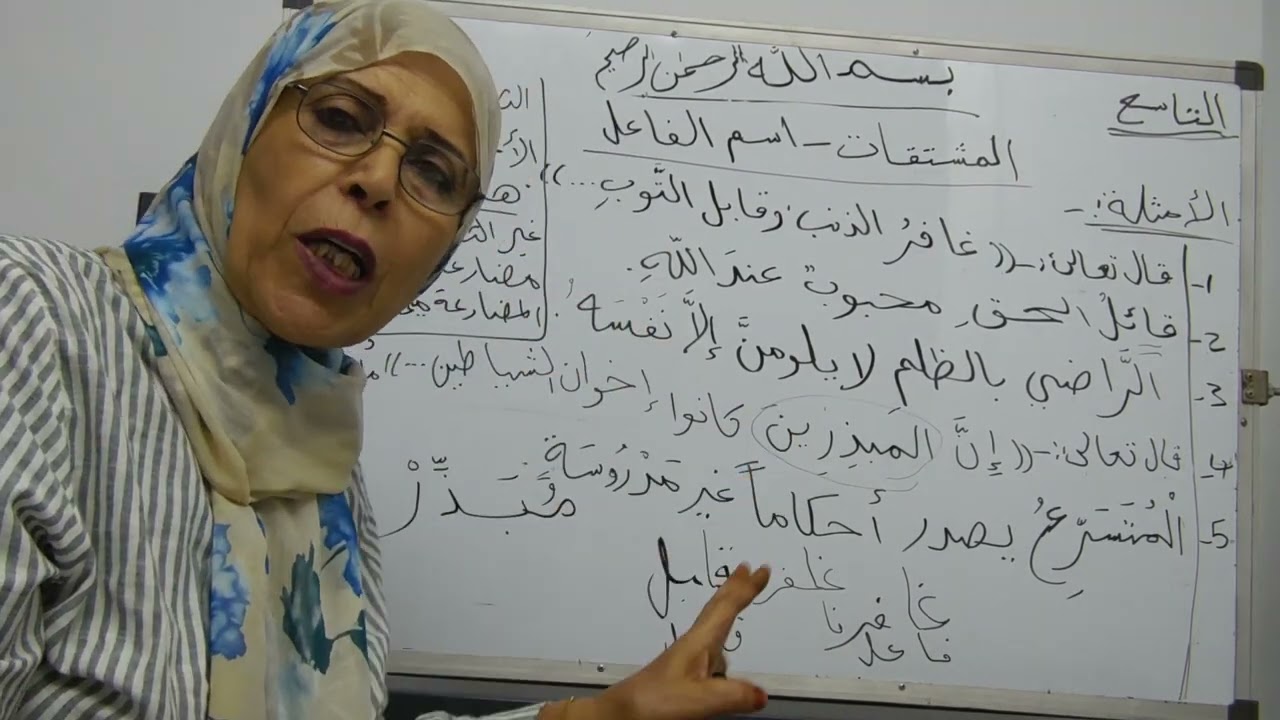 بسم الله الرحمن الرحيم
التاسع
المشتقات - اسم الفاعل
الأمثلة :-
1- قال تعالى :- (( غافرُ الذنب وقابل التَّوبِ ...))
2- قائلُ الحقِ محبوب عندَ اللَّهِ .
3- الرَّاضي بالظلمِ لا يلومنَّ إلاَّ نَفْسَهُ .
4- قال تعالى :- (( إنَّ المبذِرِين كانوا إخوان الشياطين ...))
5- الْمُتَسَرِّعُ يصدر أحكاماً غير مَدْرُوسَةٍ
مُبَذِّرْ
غافر قابل
غافرنا
فاعل
الأ
هـ
غير
مضارعه
المضارعة